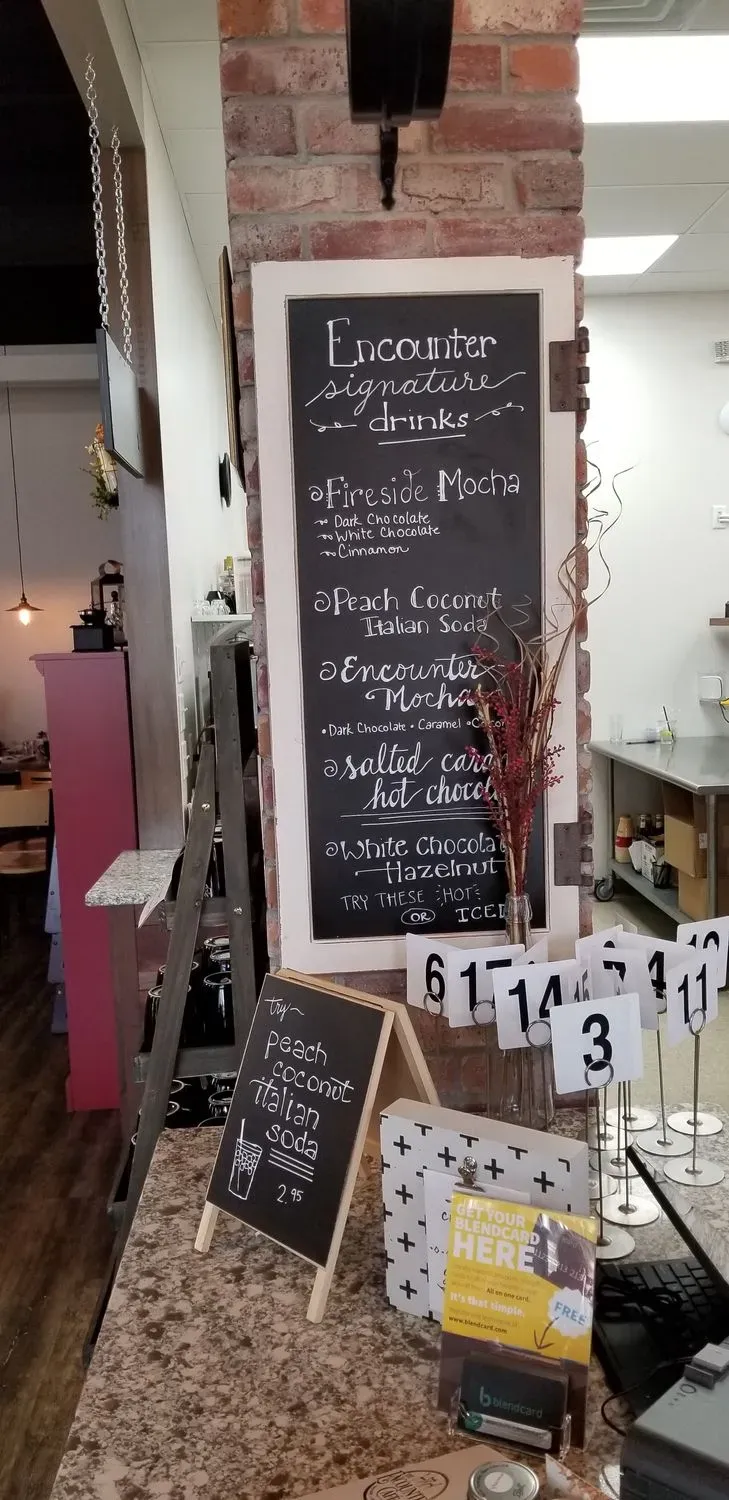 Encounter
signature
drinks
Fireside Mocha
Dark Chocolate
White Chocolate
Cinnamon
Peach Coconut
Italian Soda
Encounter
Mocha
•Dark Chocolate • Caramel •
salted
hot
White
Hazelnut
TRY THESE HOT
OR ICED
6
14
3
11
try~
peach
coconut
italian
soda
2.95
GET YOUR
BLENDCARD
HERE
All on one card.
It's that simple.
www.blendcard.com
FREE
blendcard